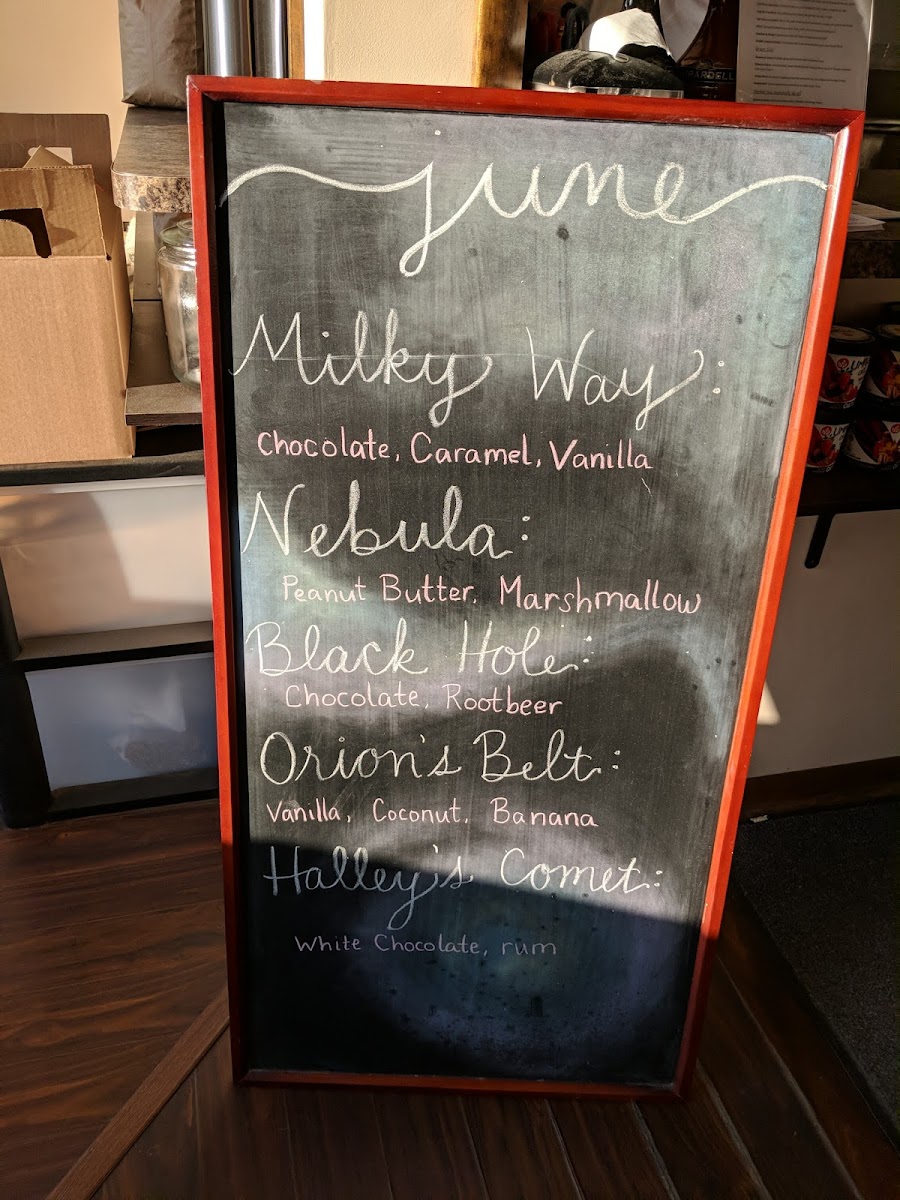 June
Milky Way:
Chocolate, Caramel, Vanilla
Nebula:
Peanut Butter, Marshmallow
Black Hole:
Chocolate, Rootbeer
Orion's Belt:
Vanilla, Coconut, Banana
Halley's Comet:
White Chocolate, rum